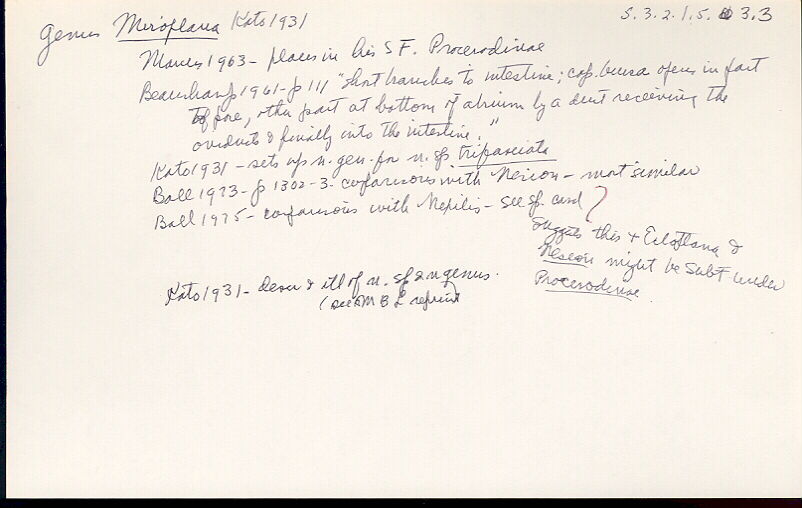 Genus Miroplana Kato 1931
S.3.2.1.5. 3.3
Marcus 1963 - places in his S F. Procerodinae
Beauchamp 1961 - p 111 "short branches to intestine; cop. bursa opens in part
to pore, other part at bottom of atrium by a duct receiving the
oviducts & finally into the intestine."
Kato 1931 - sets up n. gen. for n. sp trifasciata
Ball 1973 - p 1302-3. comparisons with Nesion - most similar
Ball 1975 - comparisons with Nepilis - see sp. card
Suggests this + Ectoplana &
Nesion might be Subf under
Procerodinae.
Kato 1931 - descr & ill of n. sp & n genus.
(see M B L reprint